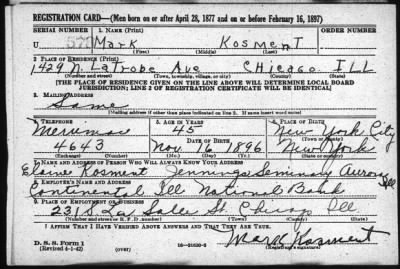 REGISTRATION CARD—(Men born on or after April 28, 1877 and on or before February 16, 1897)
SERIAL NUMBER 1. NAME (Print) ORDER NUMBER
U 570 Mark Kosment
(First) (Middle) (Last)
2. PLACE OF RESIDENCE (Print)
1429 N. LaTrobe Ave Chicago Ill
(Number and street) (Town, township, village, or city) (County) (State)
[THE PLACE OF RESIDENCE GIVEN ON THE LINE ABOVE WILL DETERMINE LOCAL BOARD
JURISDICTION; LINE 2 OF REGISTRATION CERTIFICATE WILL BE IDENTICAL]
3. MAILING ADDRESS
Same
(Mailing address if other than place indicated on line 2. If same insert word same)
4. TELEPHONE 5. AGE IN YEARS 6. PLACE OF BIRTH
Merrimac 45 New York City
DATE OF BIRTH (Town or county)
4643 Nov. 16 1896 New York
(Exchange) (Number) (Mo.) (Day) (Yr.) (State or country)
7. NAME AND ADDRESS OF PERSON WHO WILL ALWAYS KNOW YOUR ADDRESS
Elaine Kosment Jennings Seminary Aurora Ill
8. EMPLOYER'S NAME AND ADDRESS
Continental Ill National Bank
9. PLACE OF EMPLOYMENT OR BUSINESS
231 S. La Salle St Chicago Ill
(Number and street or R. F. D. number) (Town) (County) (State)
I AFFIRM THAT I HAVE VERIFIED ABOVE ANSWERS AND THAT THEY ARE TRUE.
D. S. S. Form 1
(Revised 4-1-42) (over)
Mark Kosment